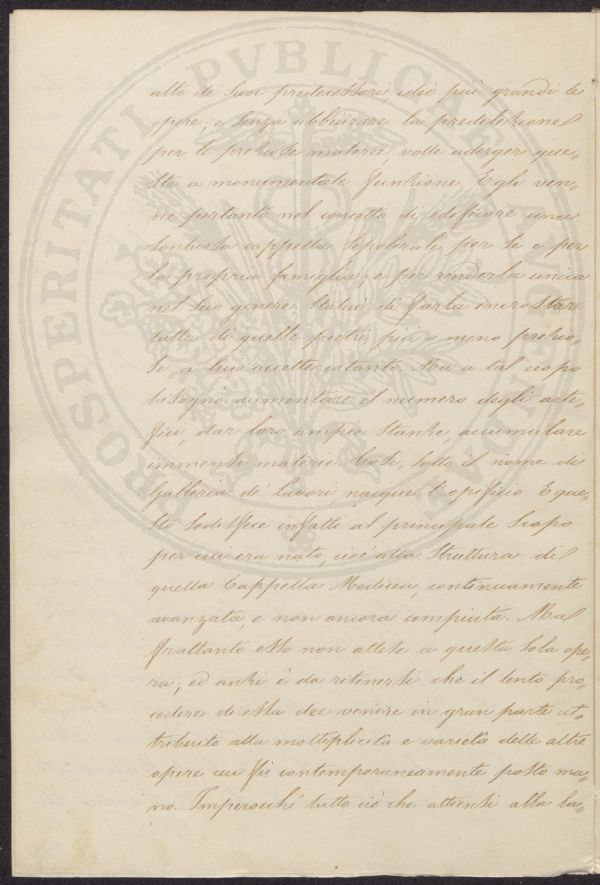 alto de suoi predecessori, ideò più grandi le
opere; e senza abbiurare la predelezione
per le preziose materie, volle aderger que-
sto a monumentale funzione. Egli ven-
ne pertanto nel concetto di edeficare una
sontuosa cappella sepolcrale per se e per
la propria famiglia, e per renderla unica
nel suo genere, statuì di farla incrostar
tutta di quelle pietre più o meno prezio-
se a lui accette cotanto. Ma a tal uopo
bisognò aumentare il numero degli arte-
fici, dar loro ampie stanze accumulare
immense materie. Così, sotto il nome di
Galleria de' lavori nacque l'opificio. E que-
sto sodisfece infatti al principale scopo
per cui era nato, cioè alla struttura di
quella Cappella Medicea, continuamente
avanzata, e non ancora compiuta. Ma
frattanto esso non attese a questa sola ope-
ra; ed anzi è da ritenersi che il lento pro-
cedere di essa dee venire in gran parte at-
tribuito alla moltiplicità e varietà delle altre
opere cui fu contemporaneamente posto ma-
no. Imperocché tutto ciò che attiensi alla la-
PROSPERITATI PVBLICAE